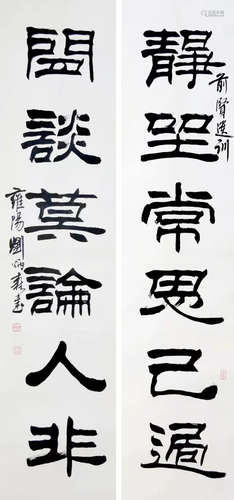 前賢遺訓
靜坐常思己過
閒談莫論人非
雍陽劉炳森書